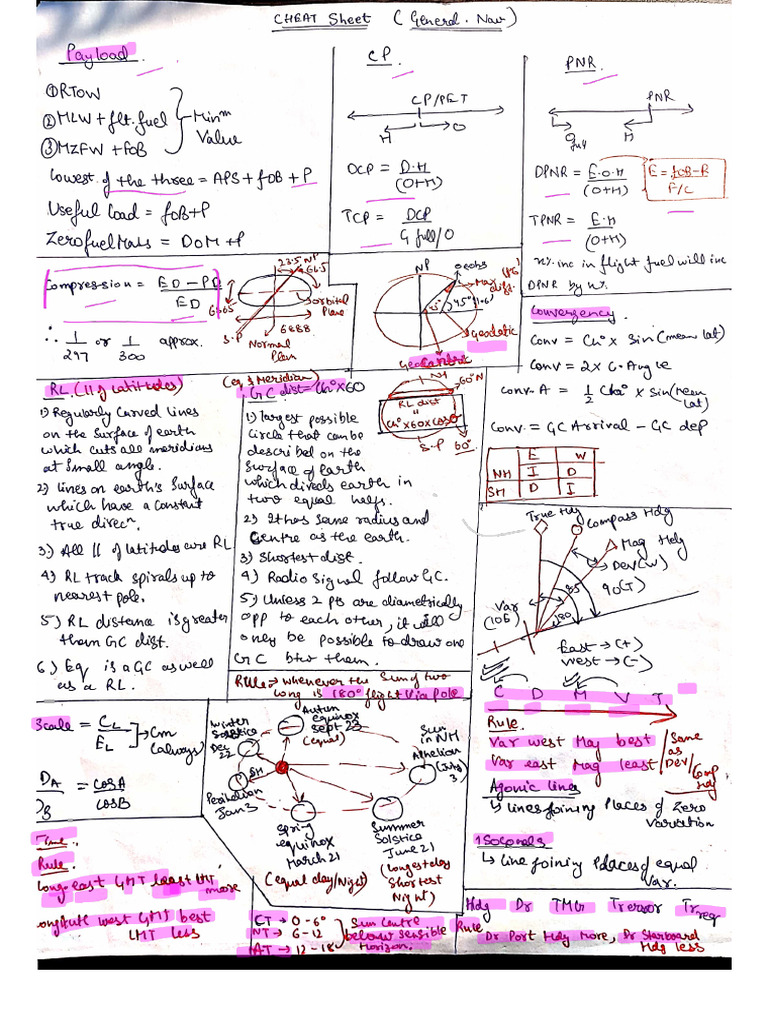 CHEAT Sheet (General. Nav)
Payload
① RTOW
② MLW + flt. fuel
③ MZFW + FOB
Minm
Value
Lowest of the three = APS + fOB + P
Useful load = foB + P
Zero fuel Mass = DOM + P
CP.
CP/PET
H
O
DCP = D.H
(O+H)
TCP = DCP
G full/O
PNR.
PNR
O
full
H
DPNR = E.O.H
(O+H)
E = foB-R
F/C
TPNR = E.H
(O+H)
x% inc in flight fuel will inc
DPNR by x%.
Compression = ED - PD
ED
∴ 1/297 or 1/300 approx.
23.5 NP
66.5
Orbital
Plane
S.P
Normal
Plan
NP
Max
diff.
45°
Geodetic
Geocentric
Convergency
Conv = Ch° x Sin (mean lat)
Conv = 2 x C. Angle
Conv. A = 1/2 Ch° x Sin (mean
lat)
Conv = GC Arrival - GC dep
E W
NH I D
SH D I
RL. (11 of latitudes)
1) Regularly Curved Lines
on the Surface of earth
which cuts all meridians
at Small angle.
2) lines on earth's Surface
which have a Constant
true direcn.
3) All 11 of latitudes are RL
4) RL track spirals up to
nearest pole.
5) RL distance is greater
them GC dist.
6) Eq is a GC as well
as a RL.
(eq & Meridian)
GC dist = Ch° x 60
1) largest possible
Circle that can be
described on the
Surface of Earth
which divides earth in
two equal helfs.
2) It has Same radius and
Centre as the earth.
3) Shortest dist.
4) Radio Signal follow GC.
5) Unless 2 pts are diametrically
opp to each other, it will
only be possible to draw one
GC btw them.
NH
60°N
RL dist
=
Ch° x 60 x cosθ
S.P
60°
Rule → whenever the Sum of two
long is 180° flight Via pole
True Hdg
Compass Hdg
Mag Hdg
Dev(W)
90(T)
85
80
Var
(10E)
East → (+)
West → (-)
C D M V T
Rule.
Var west Mag best
Var east Mag least
Same
as
Dev/
Comp
Hdg
Agonic lines
↳ lines joining Places of Zero
Variation
Isogonals
↳ Line joining Places of equal
Var.
Scale = CL
EL
Cm
(always)
DA = COSA
DB COSB
Winter
Solstice
Dec
22
Autum
equinox
Sept 23
(equal)
Sun
in NH
Athelian
(July
3)
SH
Perihelion
Jan 3
Spring
equinox
March 21
(equal day/Night)
Summer
Solstice
June 21
(longest day
Shortest
Night)
Time.
Rule.
Long. east GMT least LMT
more
Longitude west GMT best
LMT less
CT → 0 - 6°
NT → 6 - 12
AT → 12 - 18
Sun Centre
below Sensible
Horizon.
Hdg Dr TMG Trerror Trreq
Rule
Dr Port Hdg More, Dr Starboard
Hdg less